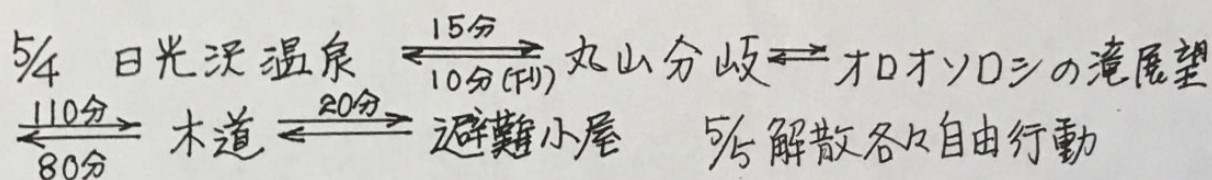 5/4 日光沢温泉 15分 ⇄ 10分(下り) 丸山分岐 ⇄ オロオソロシの滝展望
110分 ⇄ 80分 木道 20分 ⇄ 避難小屋 5/5 解散各々自由行動